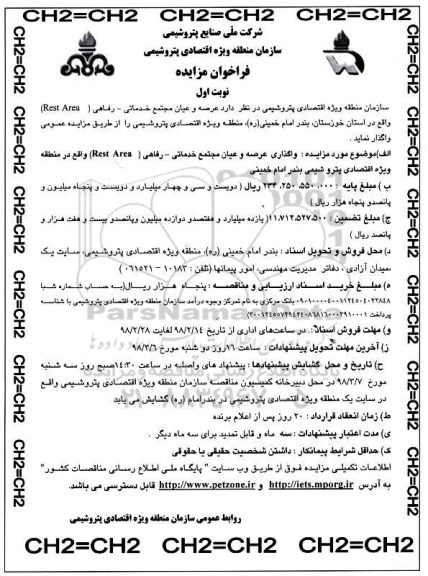 CH2=CH2 CH2=CH2 CH2=CH2 CH2=CH2
شرکت ملّی صنایع پتروشیمی
سازمان منطقه ویژه اقتصادی پتروشیمی
فراخوان مزایده
نوبت اول
سازمان منطقه ویژه اقتصادی پتروشیمی در نظر دارد عرصه و عیان مجتمع خدماتی – رفاهی (Rest Area)
واقع در استان خوزستان، بندر امام خمینی(ره)، منطقه ویژه اقتصادی پتروشیمی را از طریق مزایده عمومی
واگذار نماید.
الف)موضوع مورد مزایده : واگذاری عرصه و عیان مجتمع خدماتی – رفاهی (Rest Area) واقع در منطقه
ویژه اقتصادی پترو شیمی بندر امام خمینی
ب ) مبلغ پایه : ۲۳۴،۲۵۰،۵۵۰،۰۰۰ ریال ( دویست و سی و چهار میلیارد و دویست و پنجاه میلیون و
پانصدو پنجاه هزار ریال )
ج) مبلغ تضمین : ۱۱/۷۱۲،۵۲۷،۵۰۰( یازده میلیارد و هفتصدو دوازده میلیون وپانصدو بیست و هفت هزار و
پانصد ریال )
د) محل فروش و تحویل اسناد : بندر امام خمینی (ره)، منطقه ویژه اقتصادی پتروشیمی، سایت یک
میدان آزادی ، دفاتر مدیریت مهندسی، امور پیمانها (تلفن : ۱۰۱۸۳ – ۰۶۱۵۲۱ )
ه) مبلغ خرید اسناد ارزیابی و مناقصه : پنجاه هزار ریال(به حساب شماره شبا
بانک مرکزی به نام تمرکز وجوه درآمد سازمان منطقه ویژه اقتصادی پتروشیمی با شناسه
پرداخت
و) مهلت فروش اسناد: در ساعت‌های اداری از تاریخ ۹۸/۲/۱۴ لغایت ۹۸/۲/۲۸
ز) آخرین مهلت تحویل پیشنهادات : ساعت ۱۶روز دو شنبه مورخ ۹۸/۳/۶
ح) تاریخ و محل گشایش پیشنهادها : پیشنهاد های واصله در ساعت ۱۴:۳۰صبح روز سه شنبه
مورخ ۹۸/۳/۷ در محل دبیرخانه کمیسیون مناقصه سازمان منطقه ویژه اقتصادی پتروشیمی واقع
در سایت یک منطقه ویژه اقتصادی پتروشیمی در بندرامام (ره) گشایش می یابد
ط) زمان انعقاد قرارداد : ۲۰ روز پس از اعلام برنده
ی) مدت اعتبار پیشنهادات : سه ماه و قابل تمدید برای سه ماه دیگر .
ک) حداقل شرایط پیمانکار : داشتن شخصیت حقیقی یا حقوقی
اطلاعات تکمیلی مزایده فوق از طریق وب سایت " پایگاه ملی اطلاع رسانی مناقصات کشور"
به آدرس http://iets.mporg.ir و http://www.petzone.ir قابل دسترسی می باشد.
روابط عمومی سازمان منطقه ویژه اقتصادی پتروشیمی
CH2=CH2 CH2=CH2 CH2=CH2 CH2=CH2